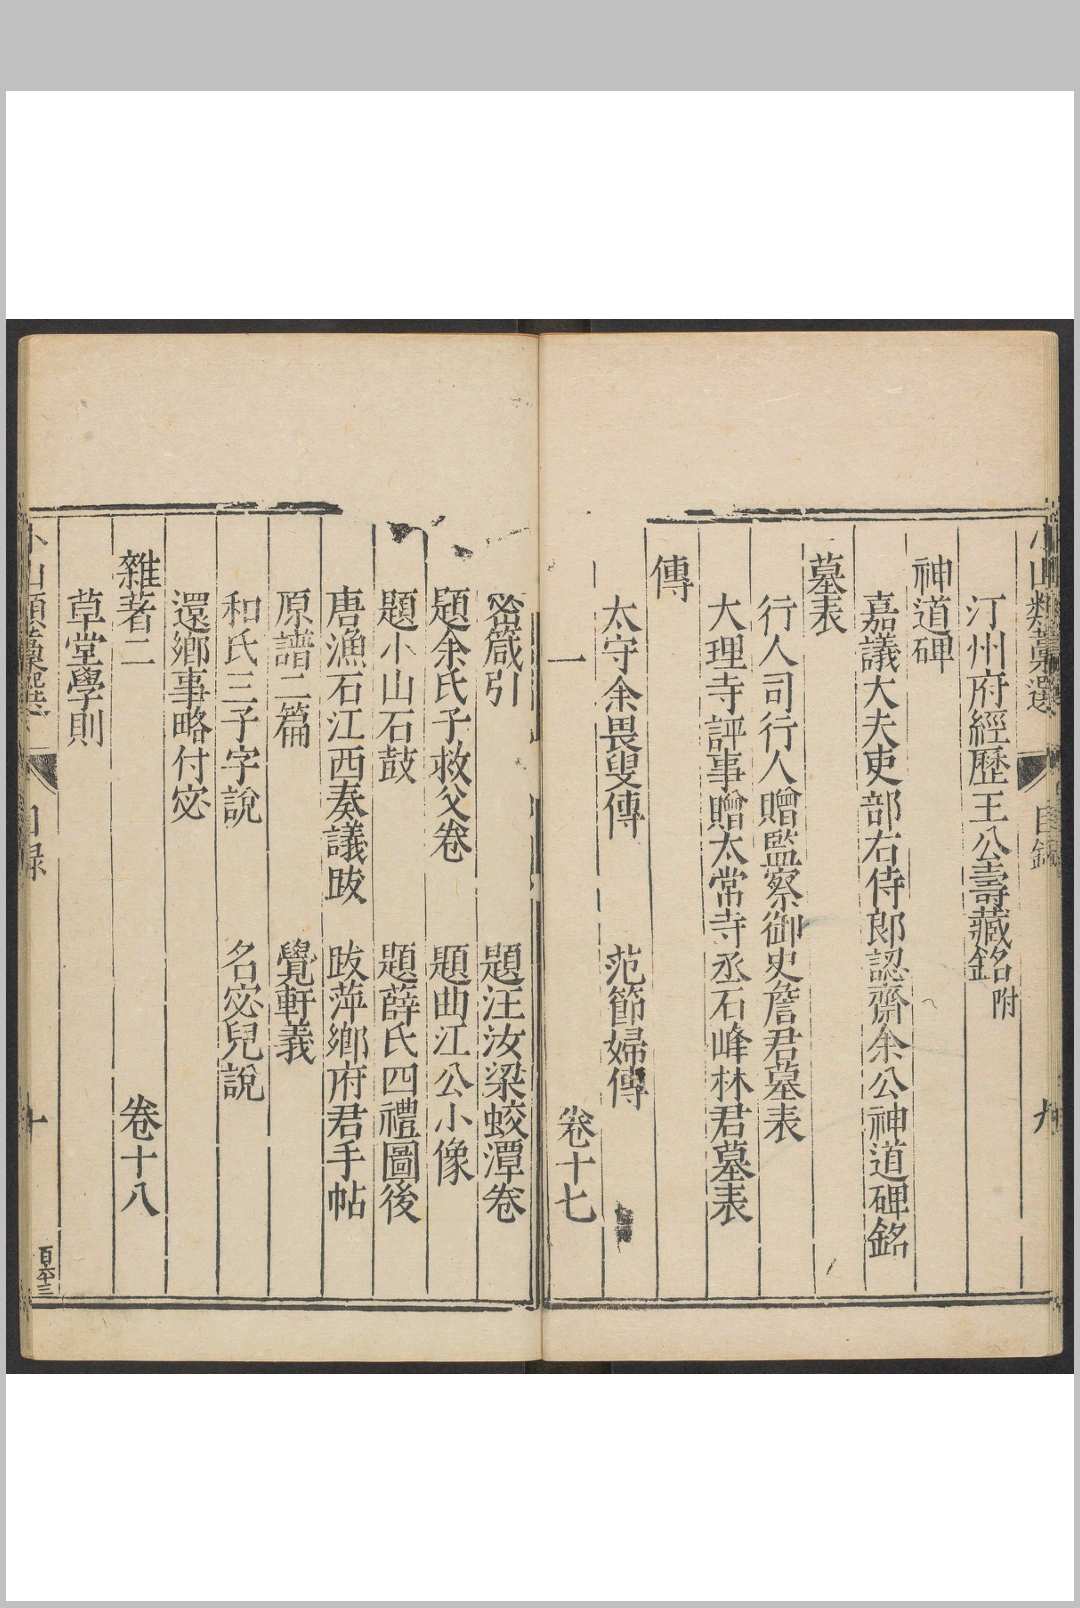 小山類藁選
目錄
九
汀州府經歷王公壽藏銘附
神道碑
嘉議大夫吏部右侍郎認齋余公神道碑銘
墓表
行人司行人贈監察御史詹君墓表
大理寺評事贈太常寺丞石峰林君墓表
傳
太守余畏叟傳 范節婦傳
一 卷十七
箴引 題汪汝梁蛟潭卷
題余氏子救父卷 題曲江公小像
題小山石鼓 題薛氏四禮圖後
唐漁石江西奏議跋 跋萍鄉府君手帖
原譜二篇 覺軒義
和氏三子字說 名宓兒說
還鄉事略付宓
雜著二 卷十八
草堂學則
小山類藁選
目錄
十